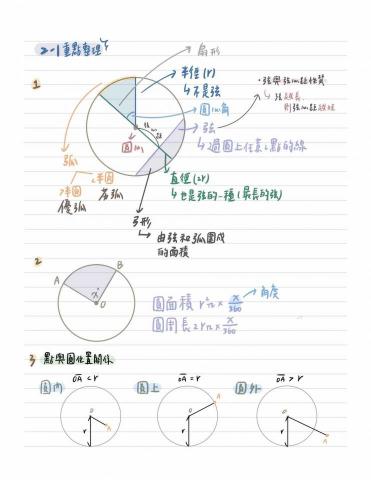 2-1 重點整理
1
扇形
半徑(r)
↳不是弦
圓心角
弦
↳過圓上任意2點的線
・弦與弦心距性質
↳弦越長
則弦心距越短
弦心距
圓心
弧
>半圓
優弧
<半圓
劣弧
直徑(2r)
↳也是弦的一種(最長的弦)
弓形
↳由弦和弧圍成
的面積
2
A
B
x°
O
圓面積 r²π × x/360
角度
圓周長 2rπ × x/360
3 點與圓位置關係
圓內
OA < r
圓上
OA = r
圓外
OA > r
O
r
A
O
r
A
O
r
A